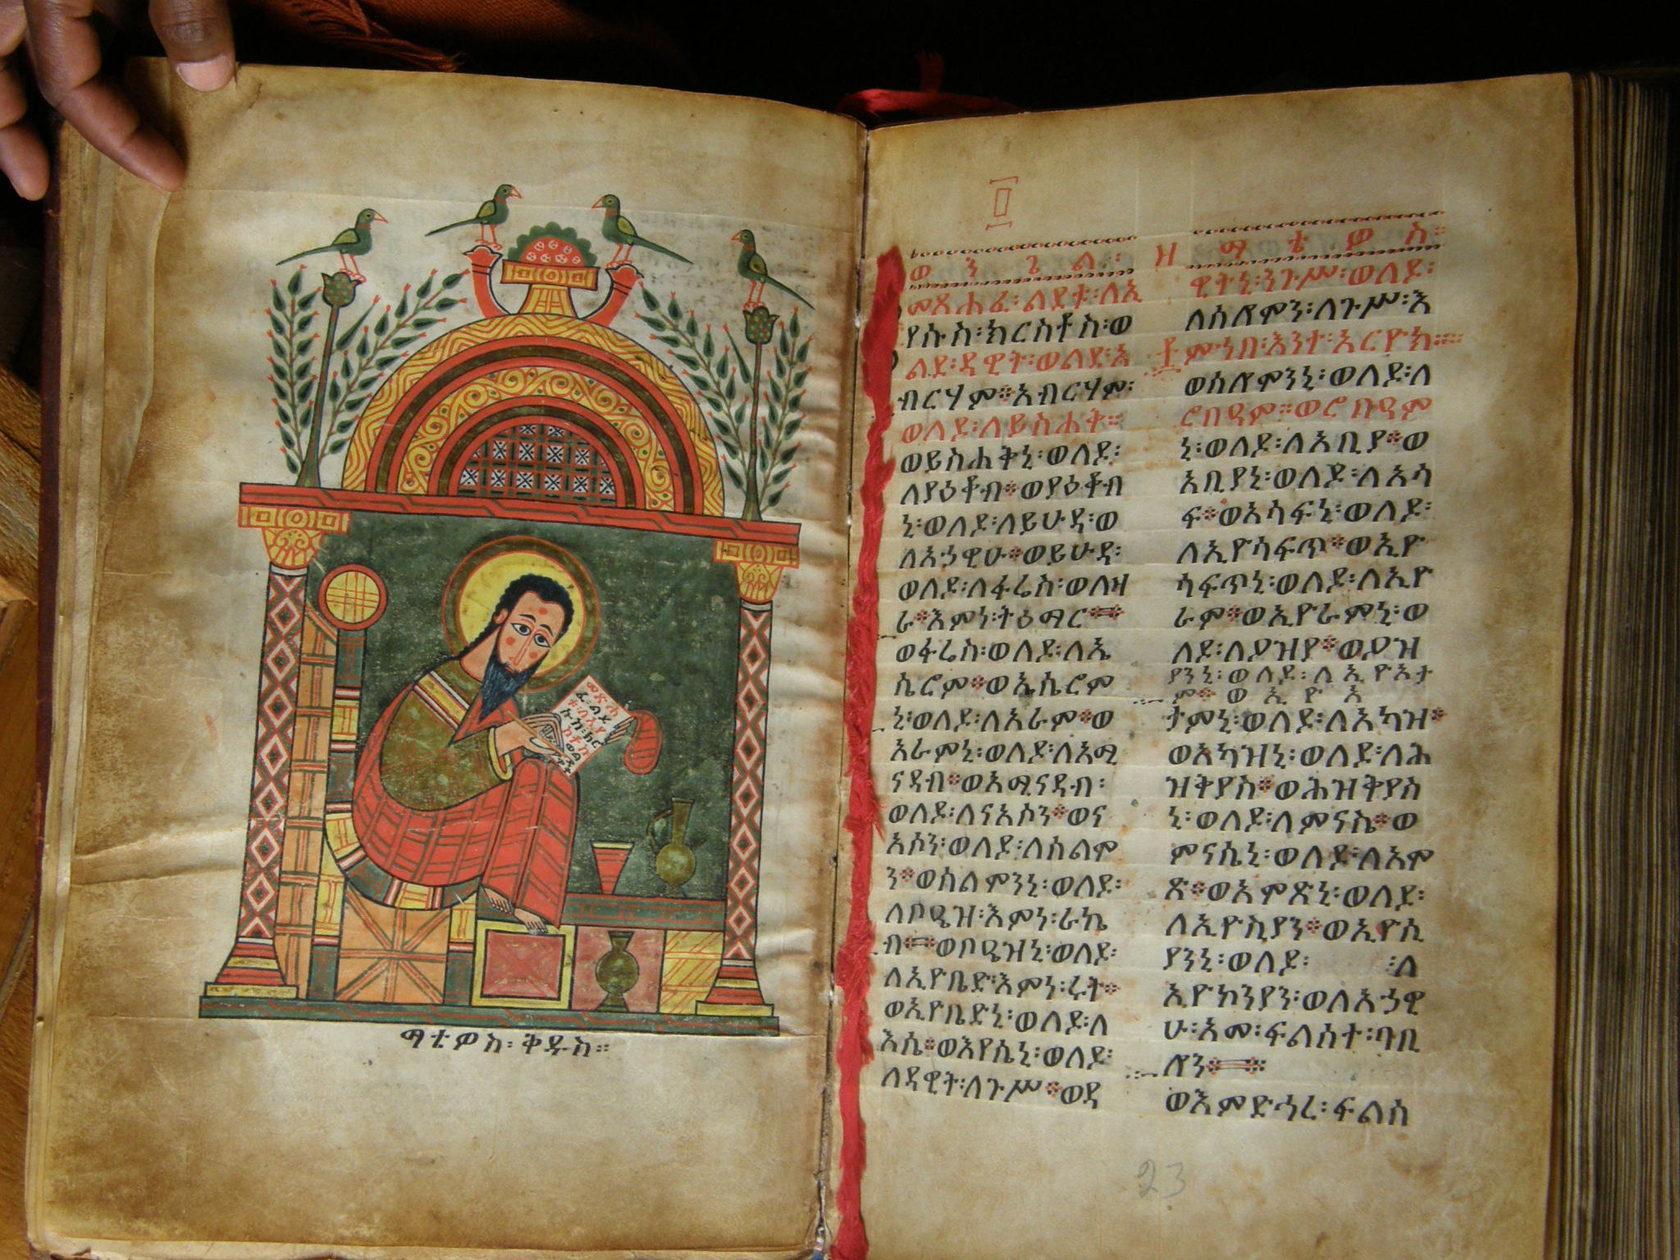 ማቴዎስ፡ቅዱስ።
መጽሐ
ፈ፡ልደ
ወንጌል፡ ዘማቴዎስ።
መጽሐፈ፡ልደቱ፡ለኢ
የሱስ፡ክርስቶስ፡ወ
ልደ፡ዳዊት፡ወልደ፡አ
ብርሃም።አብርሃም፡
ወለዶ፡ለይስሐቅ።
ወይስሐቅኒ፡ወለዶ፡
ለያዕቆብ።ወያዕቆብ
ኒ፡ወለዶ፡ለይሁዳ፡ወ
ለአኃዊሁ።ወይሁዳ፡
ወለዶ፡ለፋሬስ፡ወለዛ
ራ።እምነ፡ትዕማር።
ወፋሬስ፡ወለዶ፡ለኤ
ሴሮም።ወኤሴሮም
ኒ፡ወለዶ፡ለአራም።ወ
አራምኒ፡ወለዶ፡ለአሚ
ናዳብ።ወአሚናዳብ፡
ወለዶ፡ለናአሶን።ወና
አሶን፡ወለዶ፡ለሰልሞ
ን።ወሰልሞንኒ፡ወለዶ፡
ለቦዔዝ፡እምነ፡ራኬ
ብ።ወቦዔዝኒ፡ወለዶ፡
ለኢዮቤድ፡እምነ፡ሩት።
ወኢዮቤድኒ፡ወለዶ፡ለ
እሴ።ወእሴይኒ፡ወለዶ፡
ለዳዊት፡ለንጉሥ።ወዳ
ዊትኒ፡ንጉሥ፡ወለዶ፡
ለሰሎሞን፡ለንጉሥ፡እ
ምነ፡በእንተ፡ኦርዮክ።
ወሰሎሞንኒ፡ወለዶ፡ለ
ሮብዓም።ወሮብዓም
ኒ፡ወለዶ፡ለአቢያ።ወ
አቢያኒ፡ወለዶ፡ለአሳ
ፍ።ወአሳፍኒ፡ወለዶ፡
ለኢዮሳፍጥ።ወኢዮ
ሳፍጥኒ፡ወለዶ፡ለኢዮ
ራም።ወኢዮራምኒ፡ወ
ለዶ፡ለዖዝያ።ወዖዝ
ያንኒ፡ወለዶ፡ለኢዮአታ
ም።ወኢዮአ
ታምኒ፡ወለዶ፡ለአካዝ።
ወአካዝኒ፡ወለዶ፡ለሕ
ዝቅያስ።ወሕዝቅያስ
ኒ፡ወለዶ፡ለምናሴ።ወ
ምናሴኒ፡ወለዶ፡ለአሞ
ጽ።ወአሞጽኒ፡ወለዶ፡
ለኢዮስያን።ወኢዮሲ
ያንኒ፡ወለዶ፡ ፡ለ
ኢዮኮንያን፡ወለአኃዊ
ሁ፡አመ፡ፍልሰተ፡ባቢ
ሎን።
ወእምድኅረ፡ፍልሰ
23